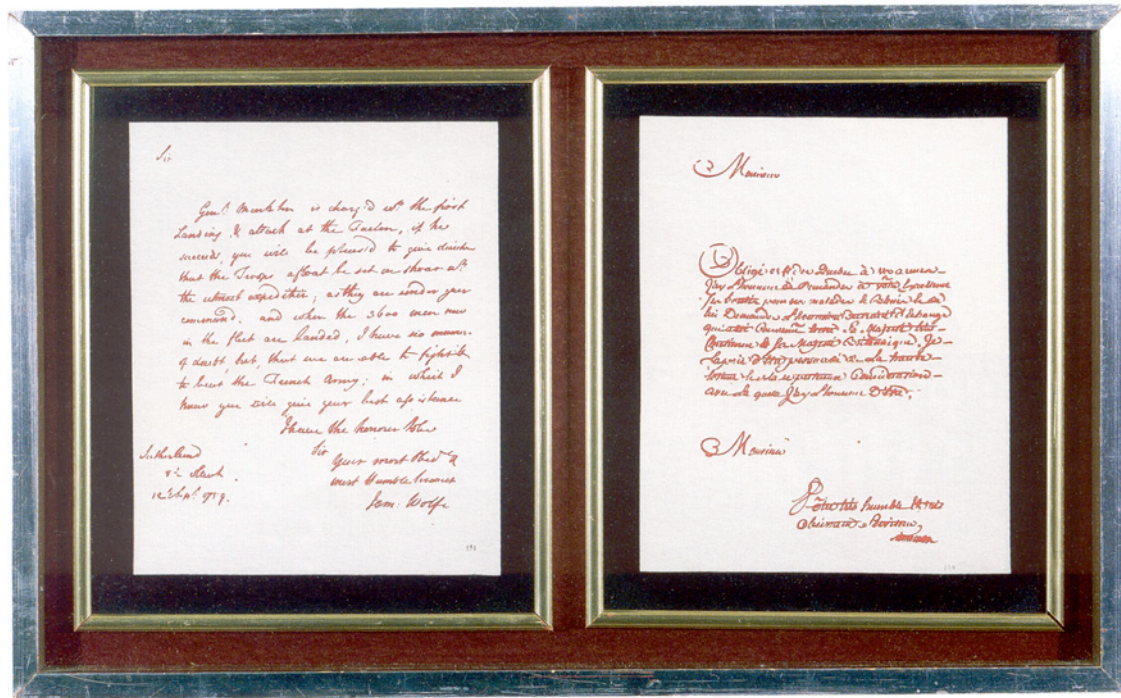 Sir
Genl. Monckton is charg'd wth. the first
Landing & attack at the Foulon, if he
succeeds, you will be pleased to give directions
that the Troops afloat be set on shoar wth.
the utmost expedition; as they are under your
command. and when the 3600 men now
in the fleet are Landed, I have no manner
of doubt, but, that we are able to fight &
to beat the French Army; in which I
know you will give your best assistance
I have the honour to be
Sir
Your most Obedt. &
most Humble Servant
Jam: Wolfe
Sutherland
12 Sept. 1759.
Monsieur
Obligé de Ceder Quebec à vos armes
J'ay l'honneur de Demander à votre Excellence
ses bontés pour nos malades &
lui Demander d'Echange
Sa Majesté très
Chretienne & Sa Majesté Britannique. Je
la haute
Consideration
avec la quelle J'ay l'honneur D'être,
Monsieur
Votre très humble & très
Obéissant Serviteur,